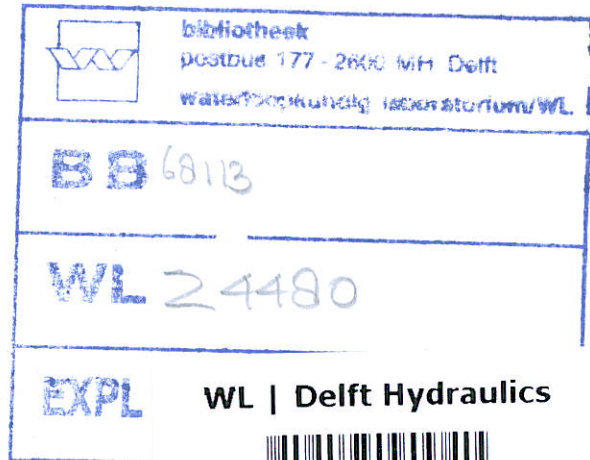 bibliotheek
postbus 177 - 2600 MH Delft
waterloopkundig laboratorium/WL
BB 68113
WL 24480
EXPL WL | Delft Hydraulics